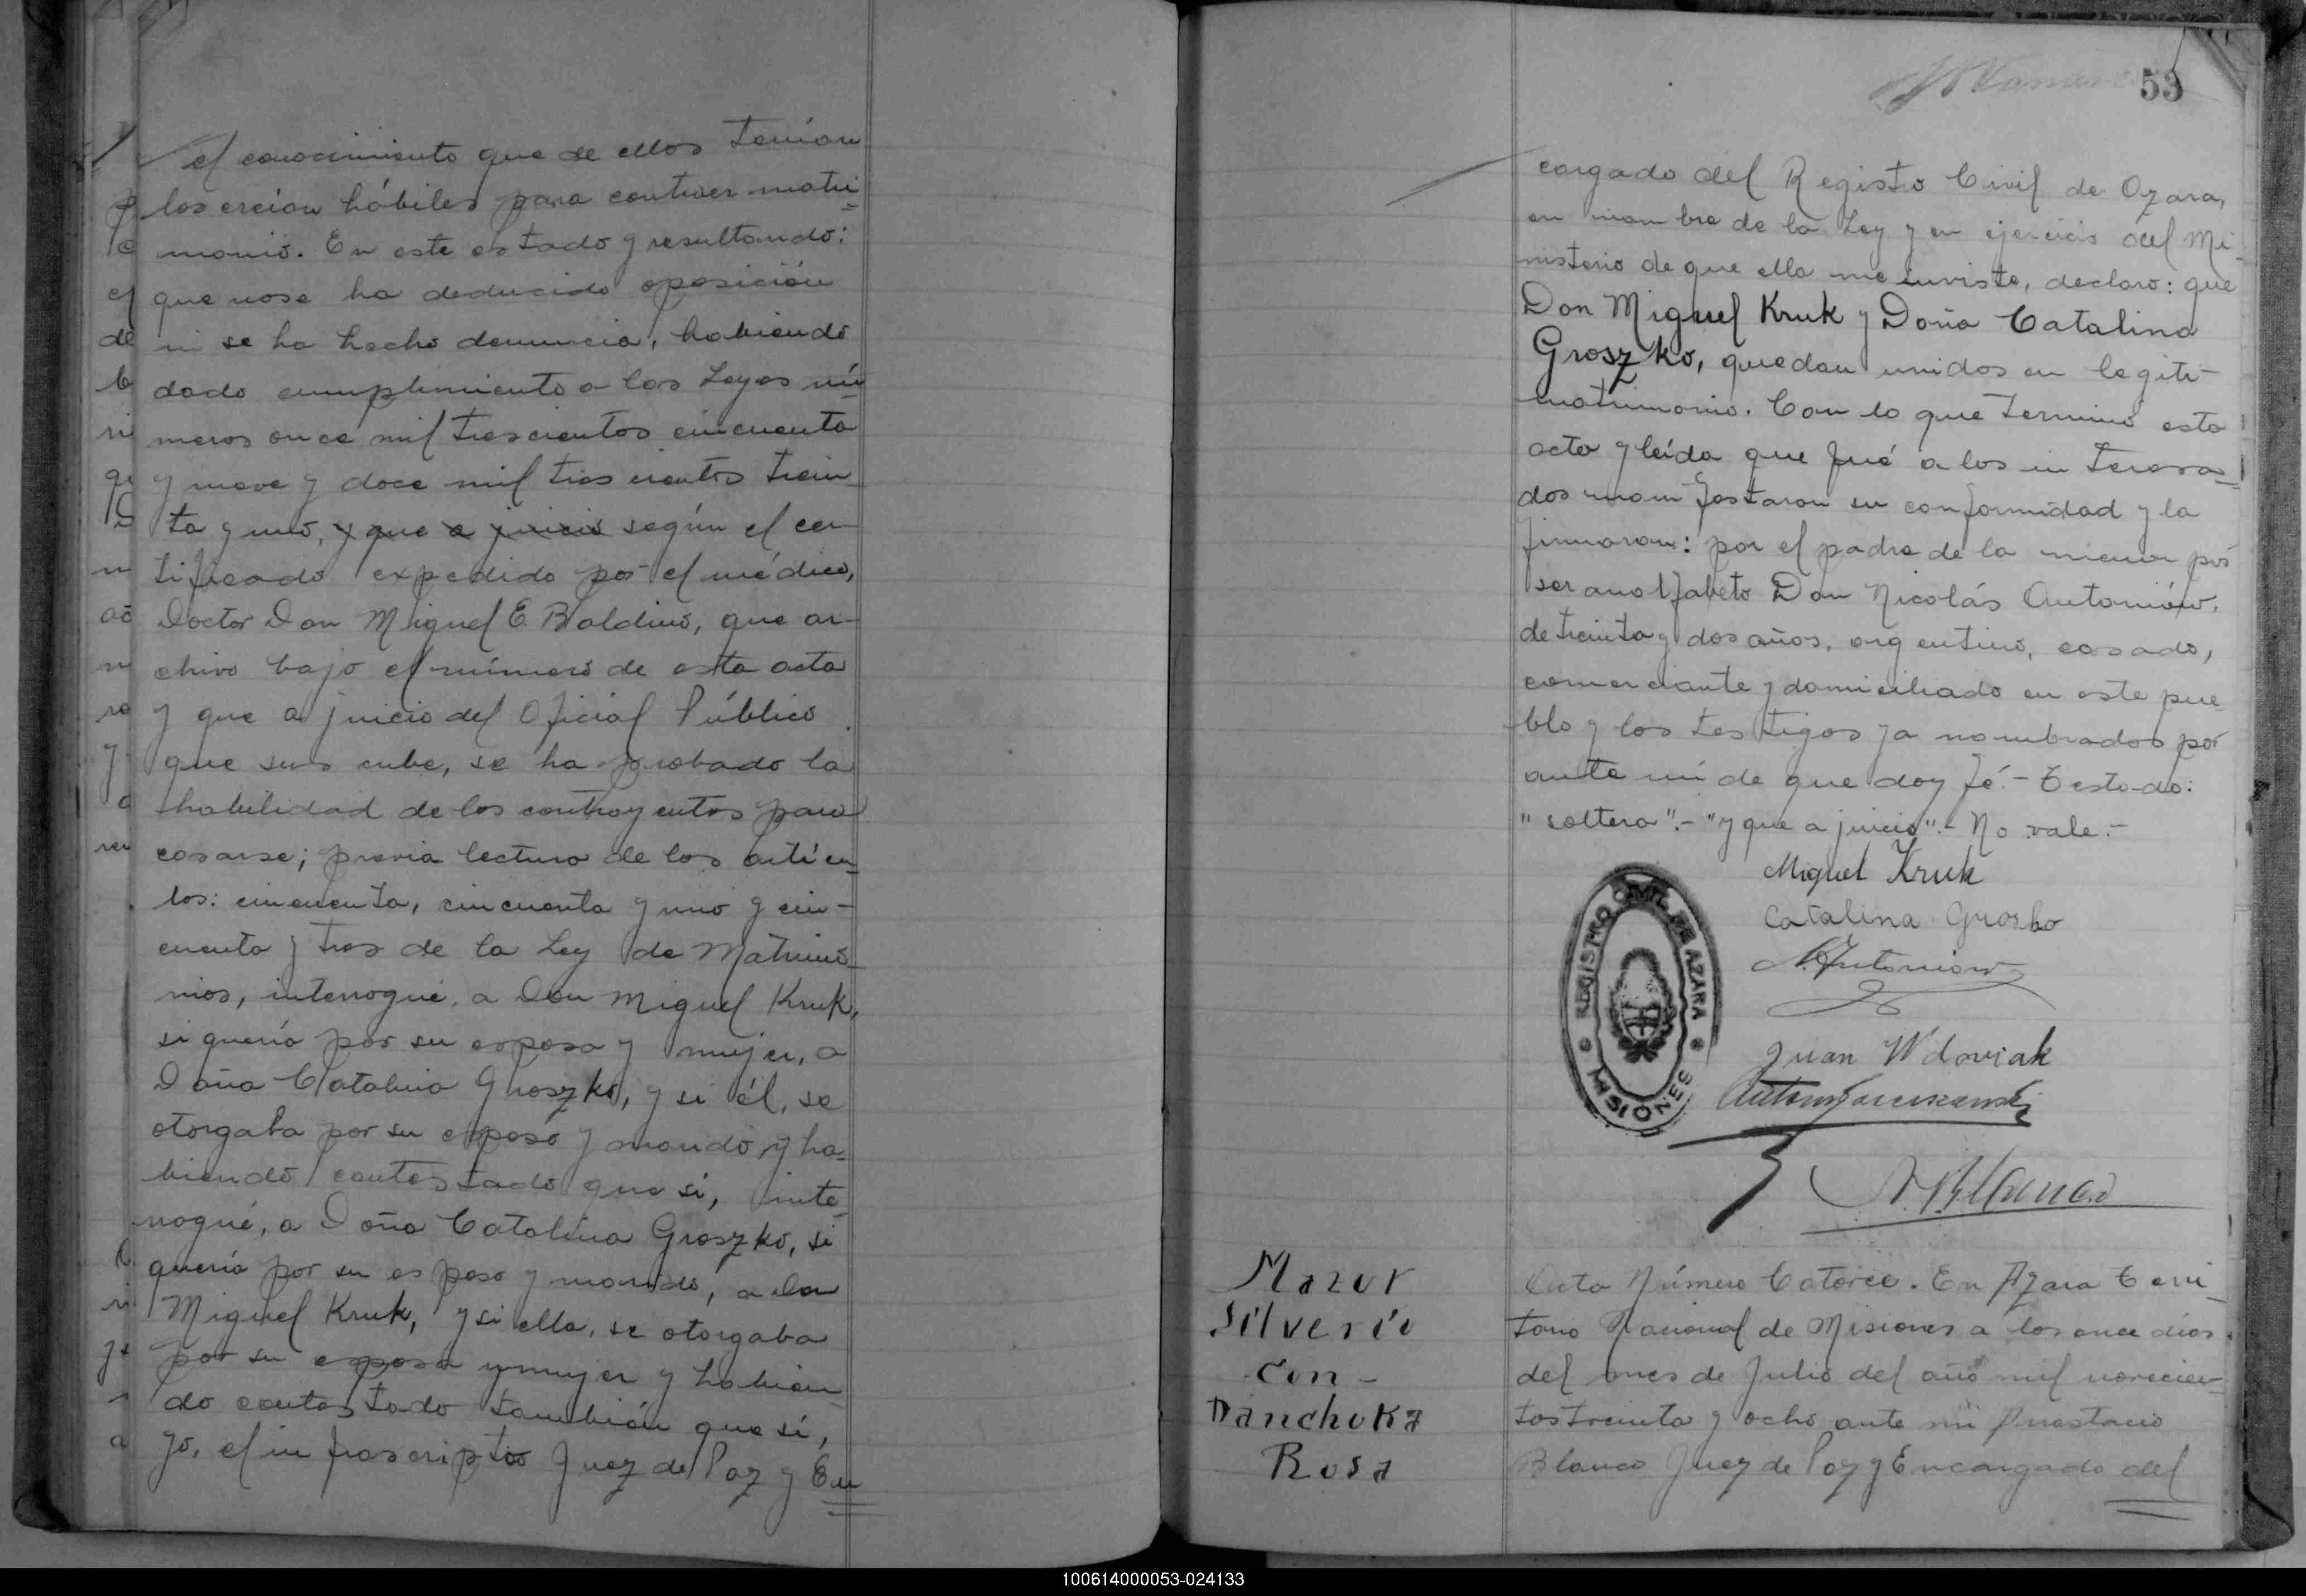 el conocimiento que de ellos tenían
los creían hábiles para contraer matri=
monio. En este estado y resultando:
que nose ha deducido oposición
ni se ha hecho denuncia, habiendo
dado cumplimiento a las Leyes nú=
meros once mil trescientos cincuenta
y nueve y doce mil tres cientos trein
ta y uno, y que a juicio según el cer
tificado expedido por el médico,
Doctor Don Miguel E. Baldino, que ar-
chivo bajo el número de esta acta
y que a juicio del Oficial Público
que sus cribe, se ha probado la
habilidad de los contrayentes para
casarse; previa lectura de los artícu=
los: cincuenta, cincuenta y uno y cin-
cuenta y tres de la Ley de Matrimo=
nios, interrogué, a Don Miguel Kruk,
si quería por su esposa y mujer, a
Doña Catalina Groszko, y si él, se
otorgaba por su esposo y marido, y ha=
biendo contestado que si, inte=
rrogué, a Doña Catalina Groszko, si
quería por su esposo y marido, a Don
Miguel Kruk, y si ella, se otorgaba
por su esposa y mujer y habien
do contestado también que sí,
yo, el infrascripto Juez de Paz y En
53
cargado del Registro Civil de Azara,
en nombre de la Ley y en ejercicio del Mi=
nisterio de que ella me inviste, declaro: que
Don Miguel Kruk y Doña Catalina
Groszko, quedan unidos en legiti-
matrimonio. Con lo que terminó esta
acta y leída que fué a los interesa=
dos manifestaron su conformidad y la
firmaron: por el padre de la menor por
ser analfabeto Don Nicolás Antoniów,
de treinta y dos años, argentino, casado,
comerciante y domiciliado en este pue
blo y los testigos ya nombrados por
ante mí de que doy fé.- Testado:
"soltera".- "y que a juicio".- No vale.-
Miguel Kruk
Catalina Grosko
N. Antoniow
REGISTRO CIVIL DE AZARA
MISIONES
Juan Wdoviak
A. Blanco
Mazur
Silverio
con -
Danchuka
Rosa
Acta Número Catorce. En Azara Terri=
torio Nacional de Misiones a los once días
del mes de Julio del año mil novecien-
tos treinta y ocho ante mi Anastacio
Blanco Juez de Paz y Encargado del
100614000053-024133